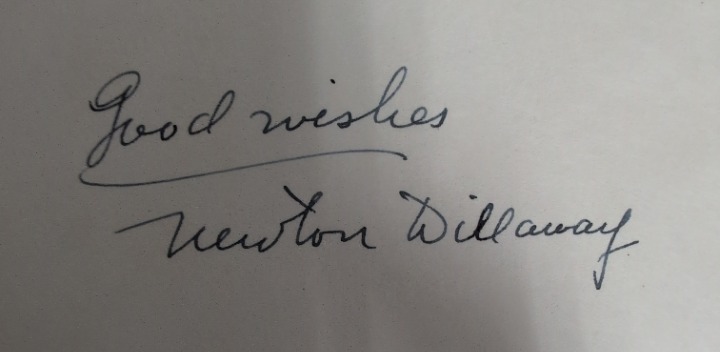 Good wishes
Newton Dillaway